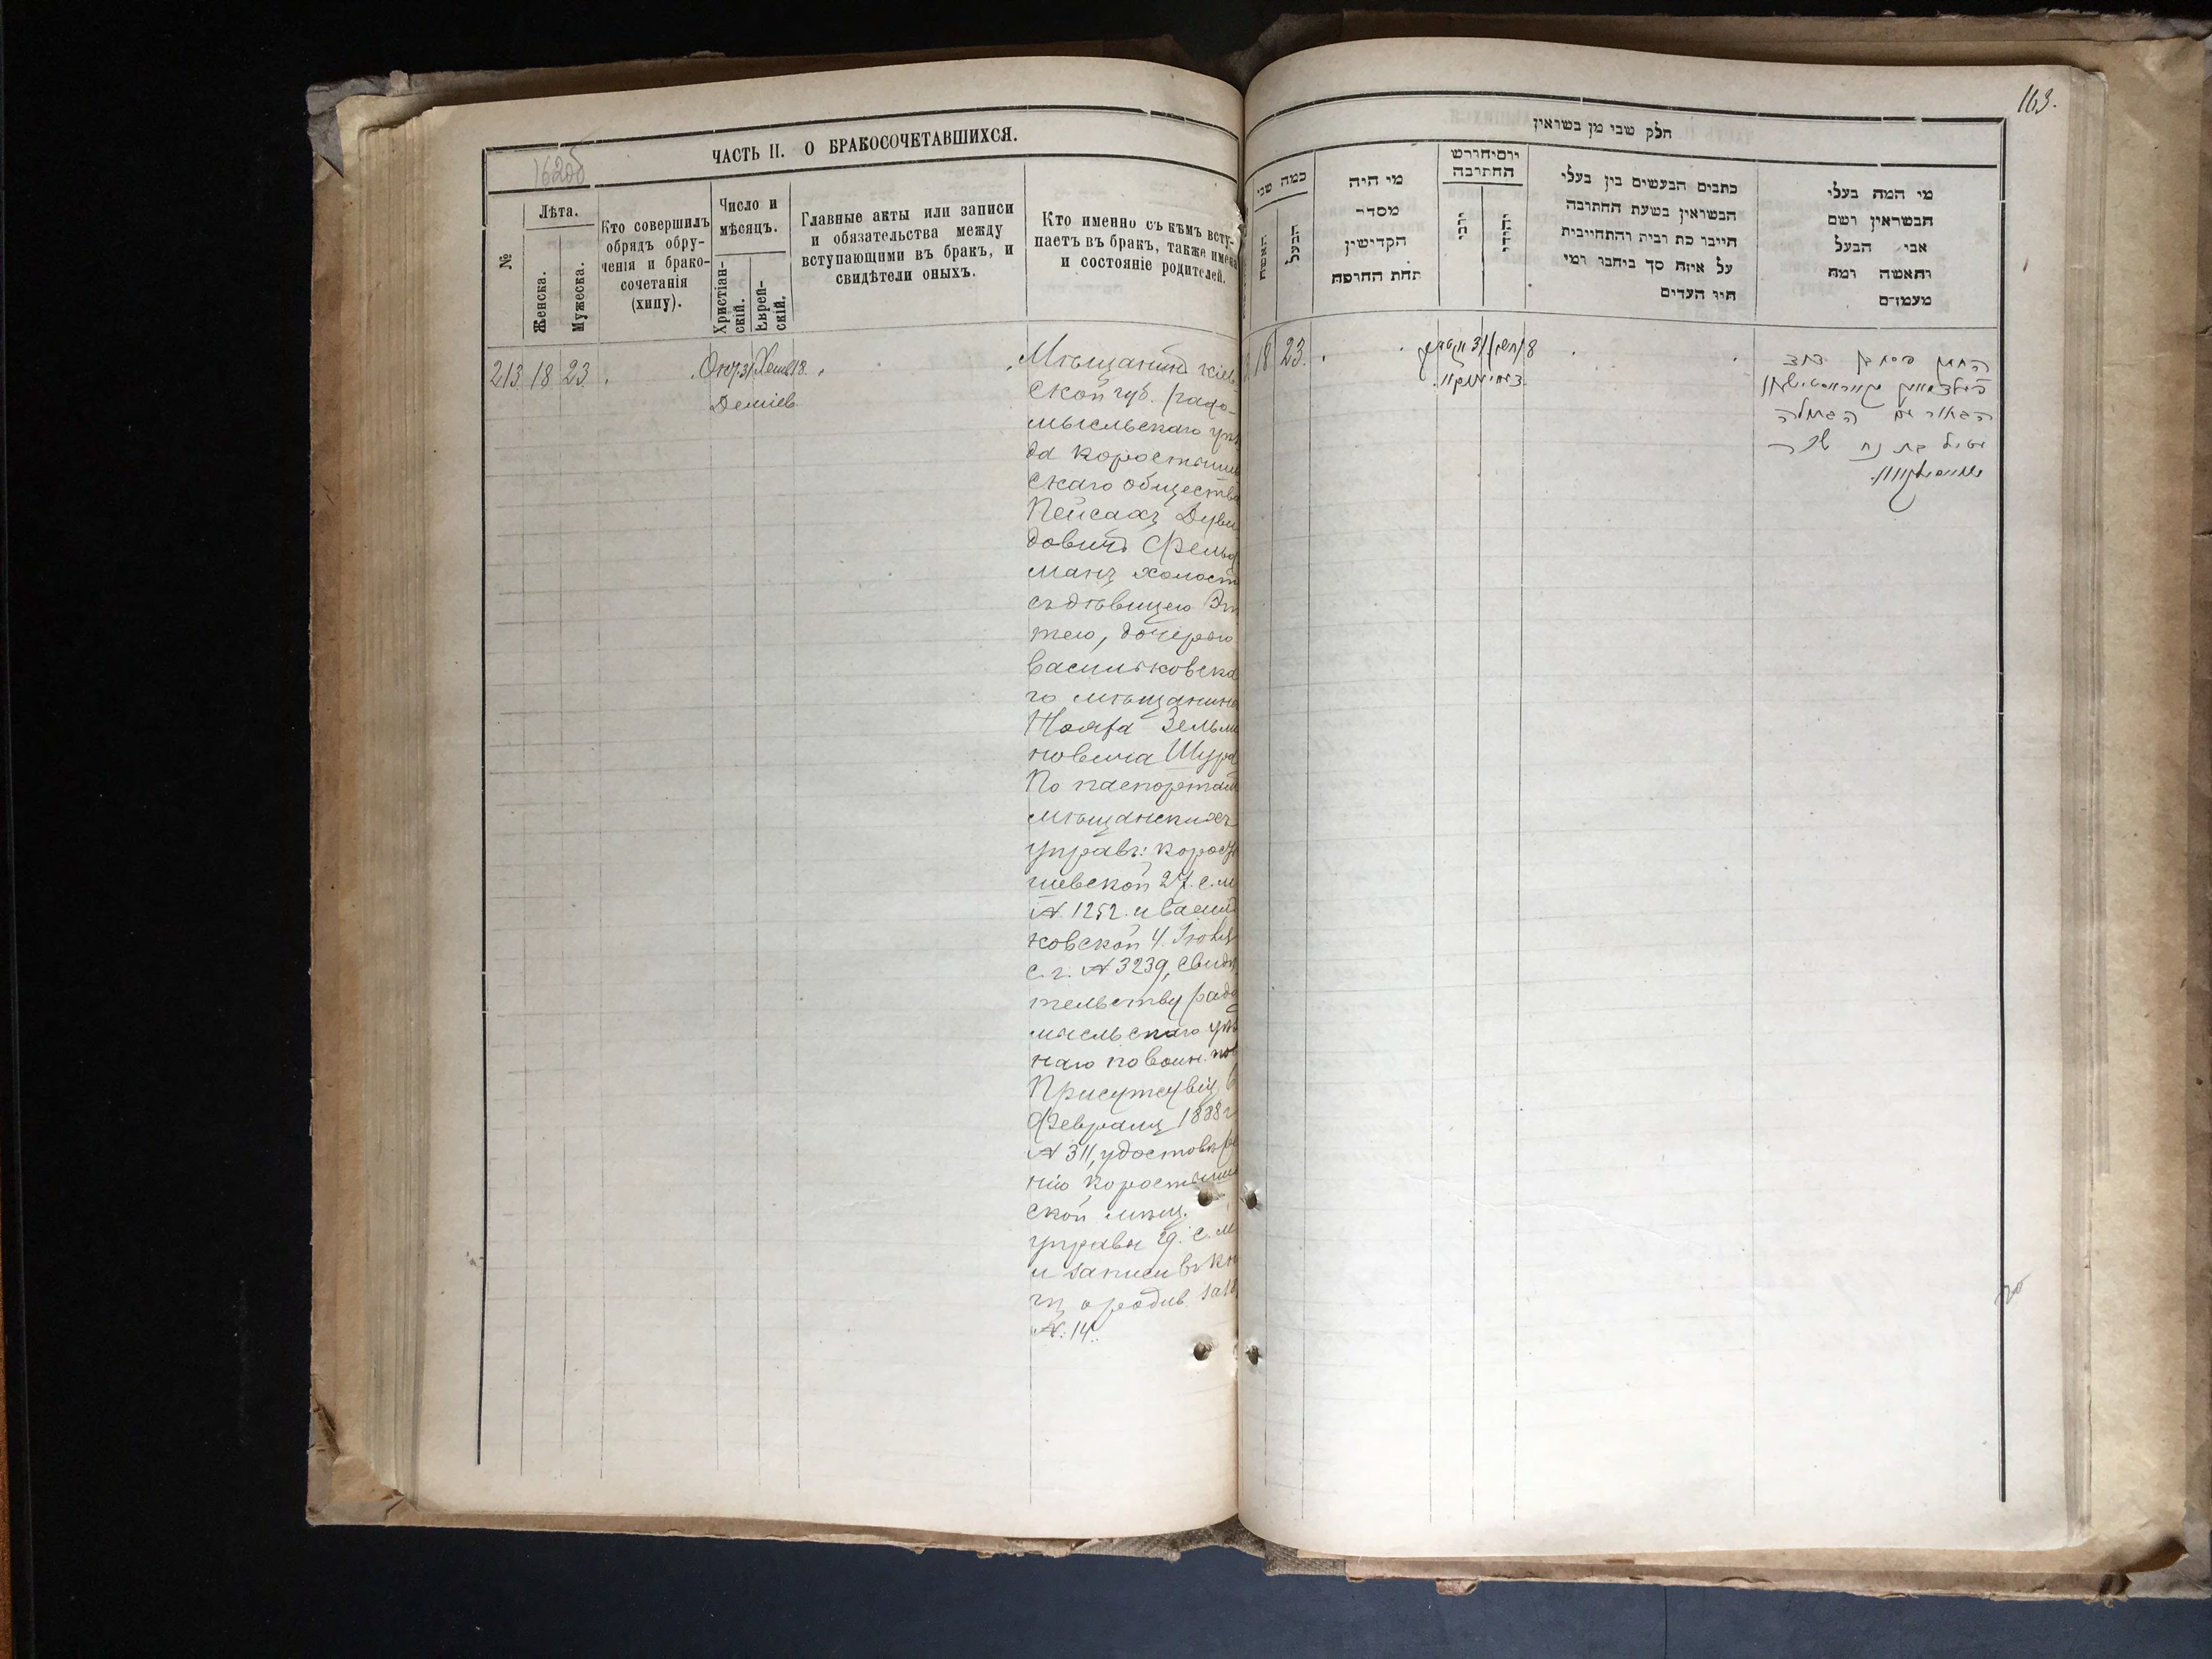 162об
ЧАСТЬ II. О БРАКОСОЧЕТАВШИХСЯ.
№
Лѣта.
Женска.
Мужеска.
Кто совершилъ
обрядъ обру-
ченія и брако-
сочетанія
(хипу).
Число и
мѣсяцъ.
Христіан-
скій.
Еврей-
скій.
Главные акты или записи
и обязательства между
вступающими въ бракъ, и
свидѣтели оныхъ.
Кто именно съ кѣмъ всту-
паетъ въ бракъ, также имена
и состояніе родителей.
213 18 23
Окт 31 Хешв 18.
Деміев
Мѣщанинъ Кіев
ской губ. Радо-
мысльскаго уѣз
да Коростыше
скаго общества
Пейсахъ Дуви
довичъ Фельд
манъ холост
съ дѣвицею Эт
тею, дочерью
Васильковска
го мѣщанина
Зельма
новича Шура
По паспортам
мѣщанскихъ
управъ: Корост
шевской 27. с. м
№ 1252. и Василь
ковской 4.
с. г. № 3239, свидѣ
тельству Радо
мысльскаго уѣз
наго по воин. пов
Присутствія 6
Февраля 1888 г
№ 311, удостовѣре
нію Коростыше
ской мѣщ.
управы 29. с. м
и записи въ кн
гѣ о родив. за 18
№. 14.
163.
חלק שני מן נשואין
כמה שני
האשה
הבעל
מי היה
מסדר
הקדישין
תחת החופה
יום וחודש
החתונה
כתבים הנעשים בין בעלי
הנשואין בשעת החתונה
חייבו כת רבית והתחייבית
על איזה סך ביחבו ומי
היו העדים
מי המה בעלי
הנשואין ושם
אבי הבעל
והאשה ומה
מעמדם
18 23.
החתן פסח בן דוד
הבתולה
בת נח